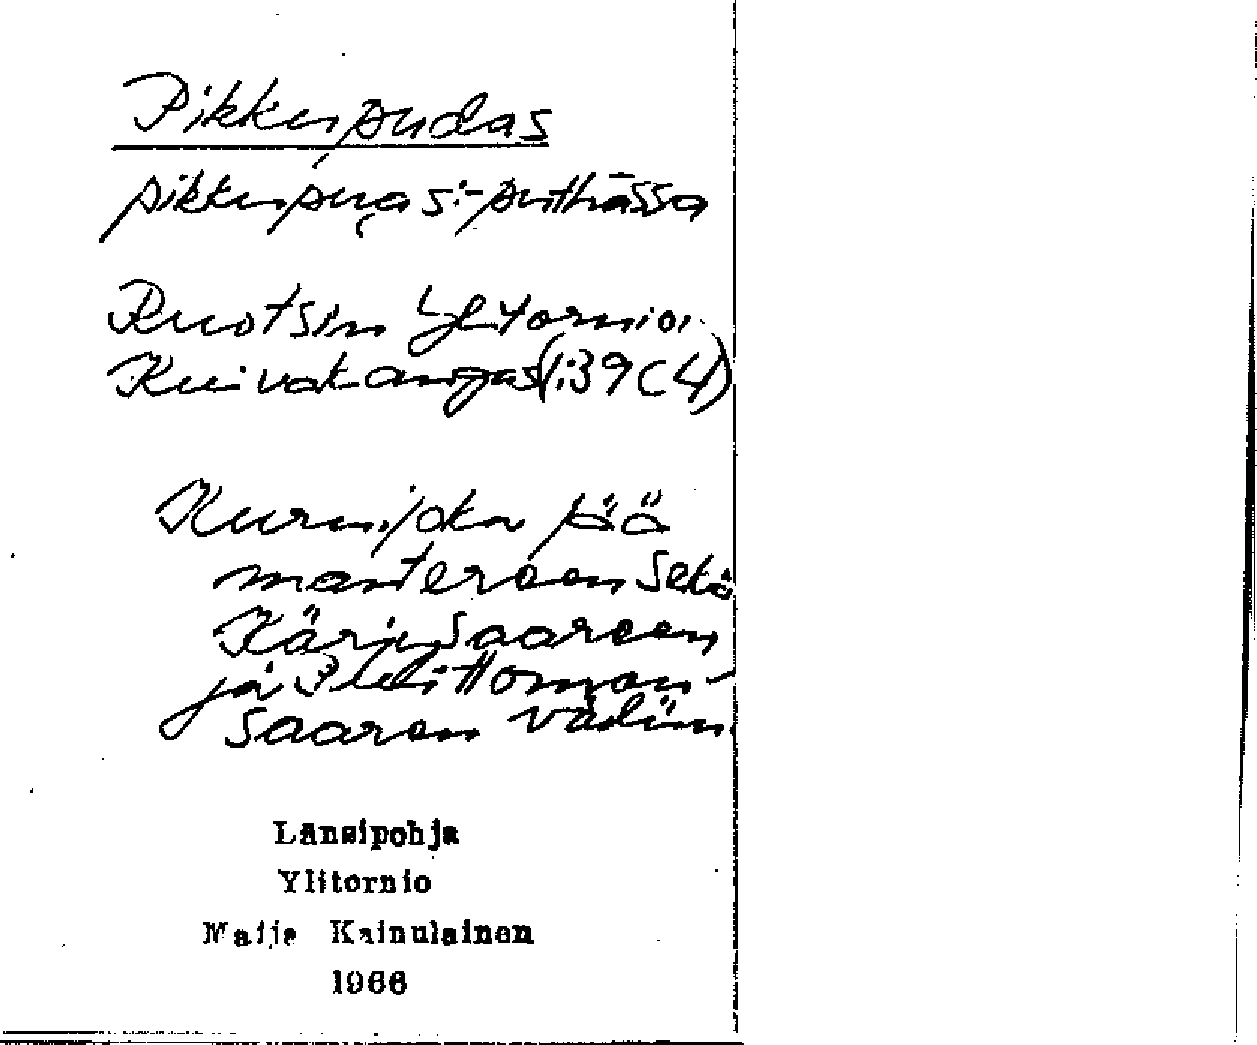 Pikkupudas
pikkupuas:-puthāssa
Ruotsin Ylitornio,
Kuivakangas (:39 (4)
Kurujoka jää
mantereen sekä
Kärjisaareen
ja
saaren väliin.
Länsipohja
Ylitornio
Maija Kainulainen
1966